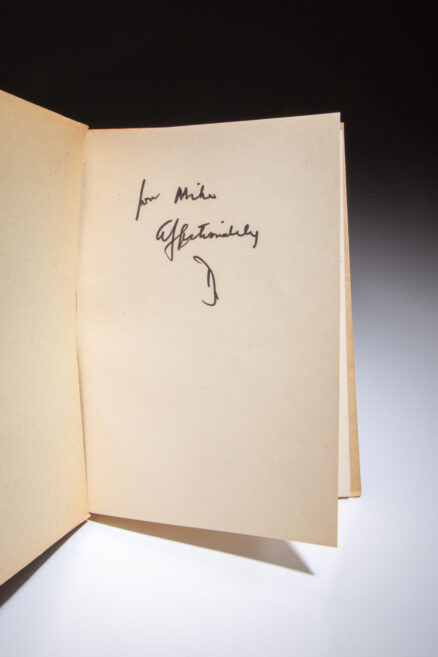 for Mike
Affectionately
D